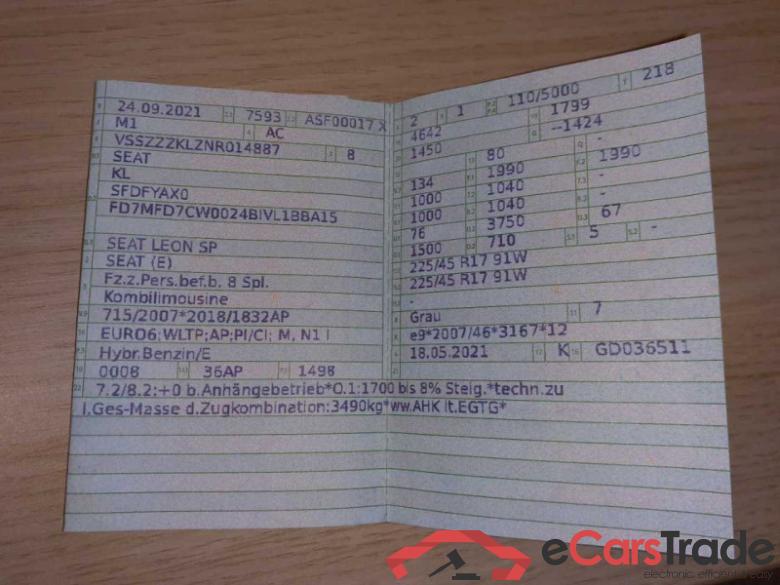 24.09.2021 7593 ASF00017 X
M1 AC
VSSZZZKLZNR014887 8
SEAT
KL
SFDFYAX0
FD7MFD7CW0024BIVL1BBA15
SEAT LEON SP
SEAT (E)
Fz.z.Pers.bef.b. 8 Spl.
Kombilimousine
715/2007*2018/1832AP
EURO6;WLTP;AP;PI/CI; M, N1 I
Hybr.Benzin/E
0008 36AP 1498
2 1 110/5000 218
4642 1799
1450 --1424
80 -
134 1990 1990
1000 1040 -
1000 1040 -
76 3750 67
1500 710 5 -
225/45 R17 91W
225/45 R17 91W
-
Grau 7
e9*2007/46*3167*12
18.05.2021 K GD036511
7.2/8.2:+0 b.Anhängebetrieb*O.1:1700 bis 8% Steig.*techn.zu
l.Ges-Masse d.Zugkombination:3490kg*ww.AHK lt.EGTG*
eCarsTrade